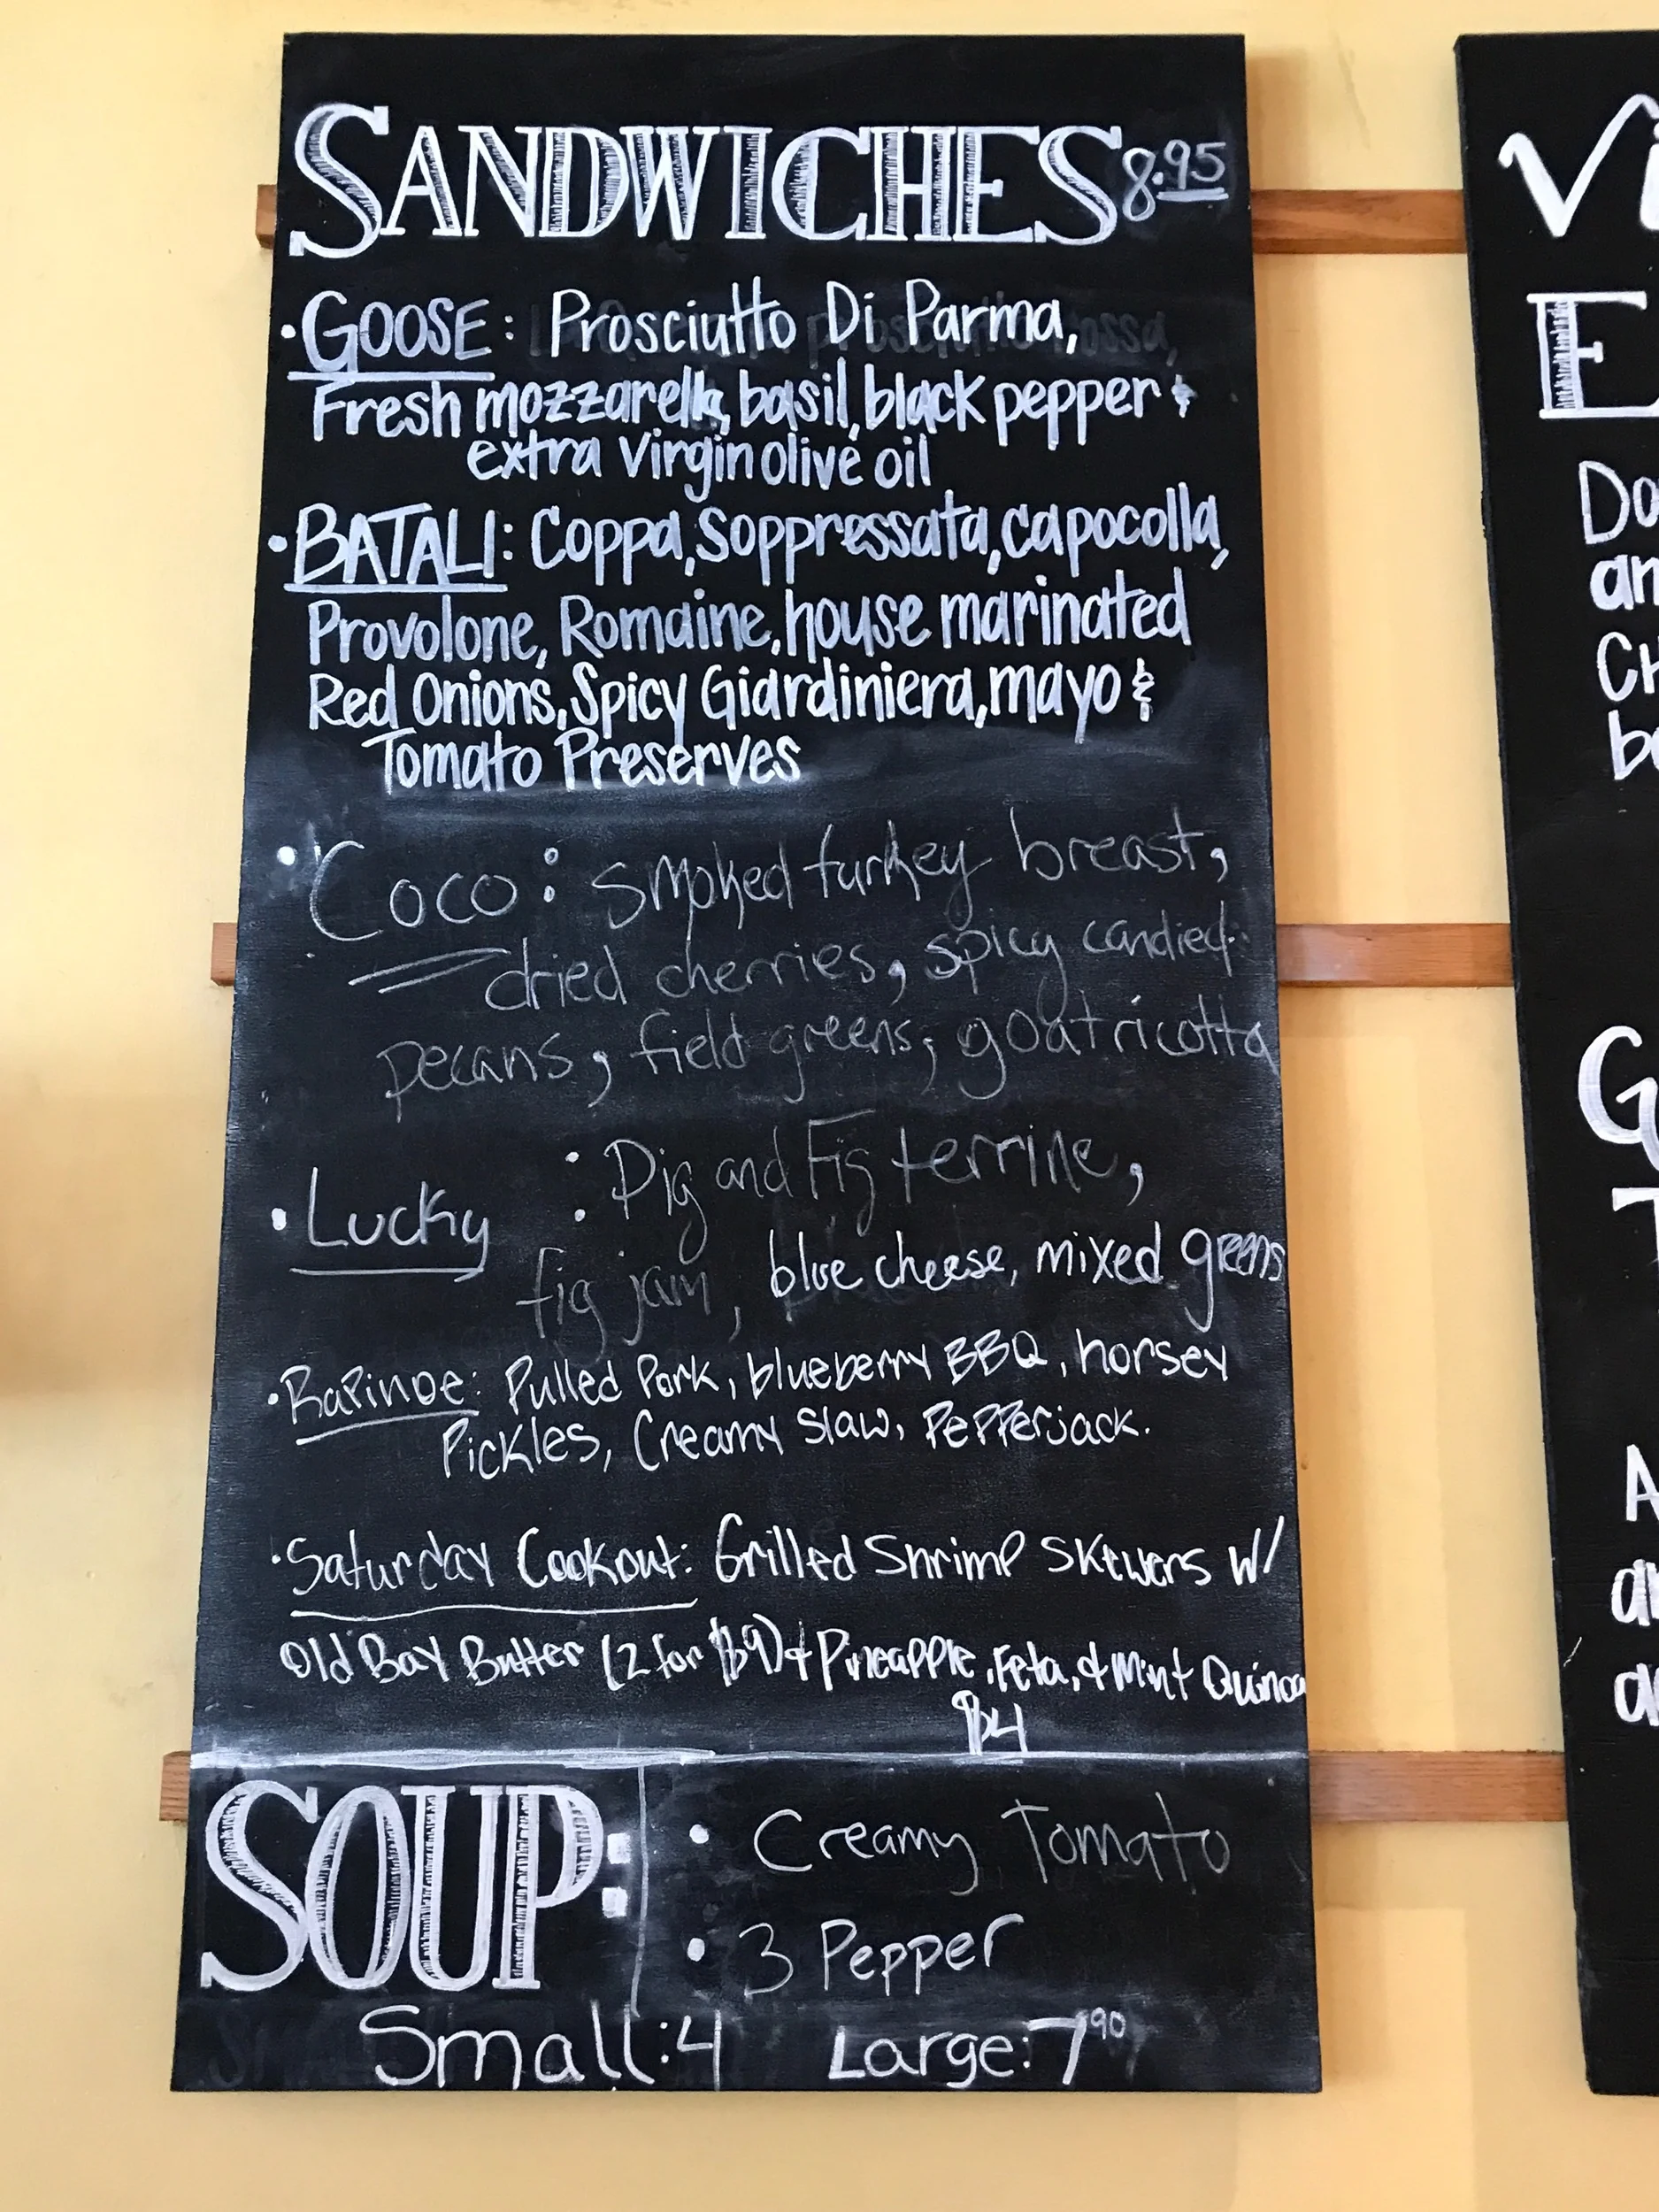 SANDWICHES 8.95
• GOOSE: Prosciutto Di Parma,
Fresh mozzarella, basil, black pepper &
extra virgin olive oil
• BATALI: Coppa, Soppressata, capocolla,
Provolone, Romaine, house marinated
Red Onions, Spicy Giardiniera, mayo &
Tomato Preserves
• Coco: smoked turkey breast,
dried cherries, spicy candied
pecans, field greens, goat ricotta
• Lucky : Pig and Fig terrine,
fig jam, blue cheese, mixed greens
• Rapinoe: Pulled Pork, blueberry BBQ, horsey
Pickles, Creamy Slaw, Pepperjack.
• Saturday Cookout: Grilled Shrimp Skewers w/
Old Bay Butter (2 for $9) & Pineapple, Feta, & Mint Quinoa
$4
SOUP:
• Creamy Tomato
• 3 Pepper
Small: 4 Large: 7 90
Vi
E
Do
an
CH
be
G
T
A
an